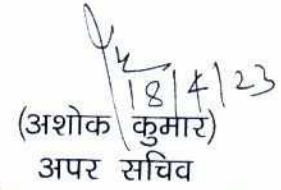 18/4/23
(अशोक कुमार)
अपर सचिव